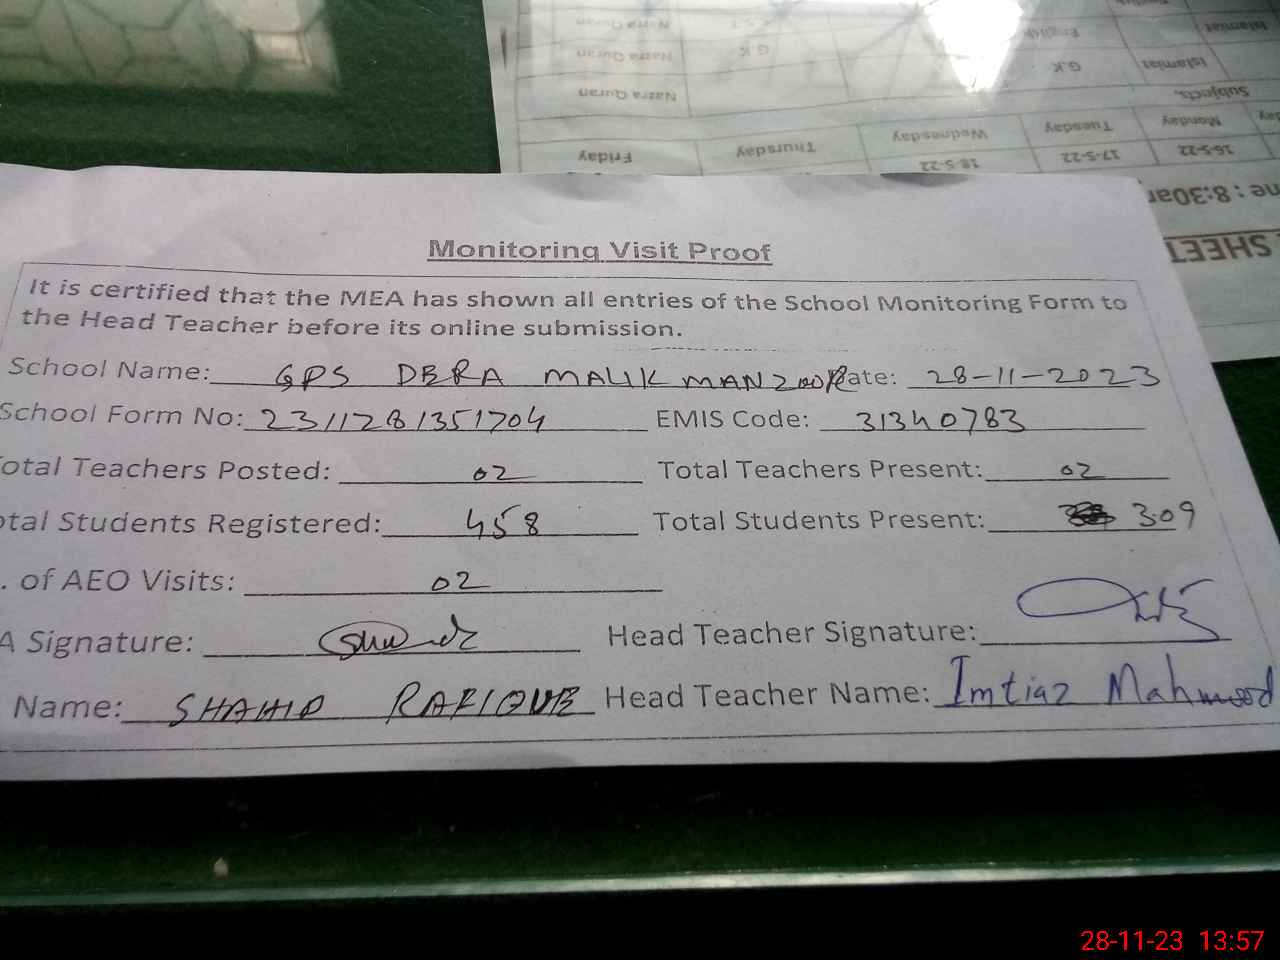 Monitoring Visit Proof
It is certified that the MEA has shown all entries of the School Monitoring Form to
the Head Teacher before its online submission.
School Name: GPS DERA MALIK MANZOOR Date: 28-11-2023
School Form No: 2311281351704 EMIS Code: 31340783
otal Teachers Posted: 02 Total Teachers Present: 02
otal Students Registered: 458 Total Students Present: 309
. of AEO Visits: 02
A Signature: Head Teacher Signature:
Name: SHAHID RAFIQUE Head Teacher Name: Imtiaz Mahmood
SHEET
ne : 8:30am
16-5-22 17-5-22 18-5-22
Monday Tuesday Wednesday Thursday Friday
Subjects,
Nazra Quran
Islamiat G.K Nazra Quran
Islamiat English Nazra Quran
28-11-23 13:57